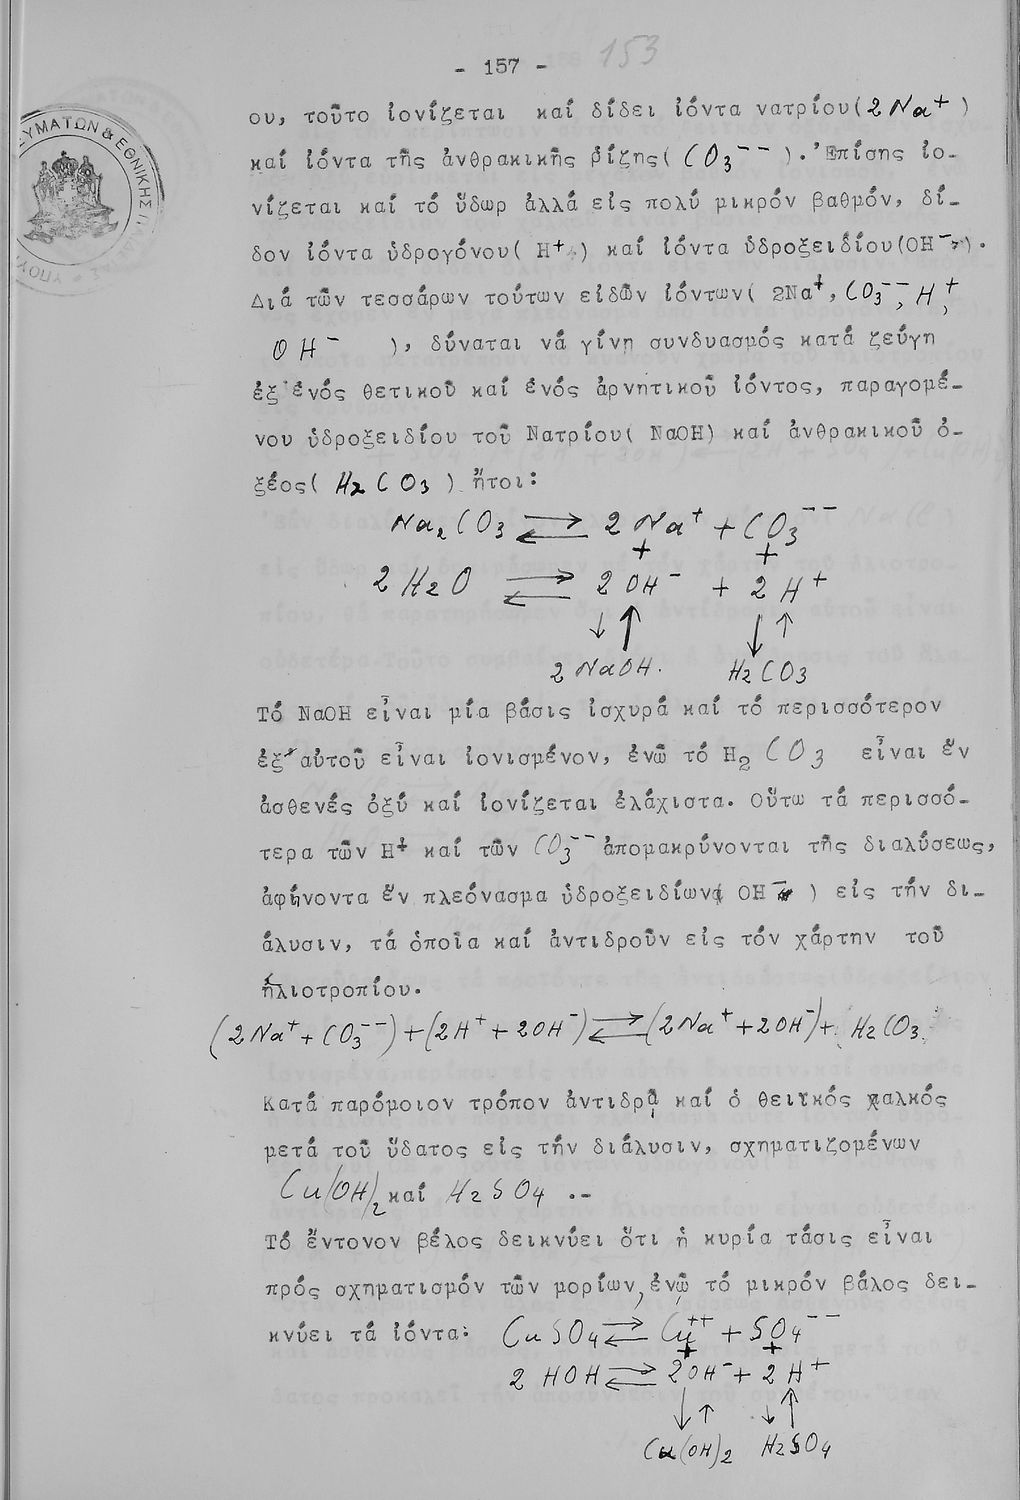 - 157 - 153
ου, τοῦτο ἰονίζεται καί δίδει ἰόντα νατρίου(2Na⁺)
καί ἰόντα τῆς ἀνθρακικῆς ρίζης(CO₃⁻⁻). Ἐπίσης ἰο-
νίζεται καί τό ὕδωρ ἀλλά εἰς πολύ μικρόν βαθμόν, δί-
δον ἰόντα ὑδρογόνου( H⁺ ) καί ἰόντα ὑδροξειδίου(OH⁻).
Διά τῶν τεσσάρων τούτων εἰδῶν ἰόντων( 2Na⁺, CO₃⁻⁻, H⁺,
OH⁻ ), δύναται νά γίνη συνδυασμός κατά ζεύγη
ἐξ ἑνός θετικοῦ καί ἑνός ἀρνητικοῦ ἰόντος, παραγομέ-
νου ὑδροξειδίου τοῦ Νατρίου( NaOH) καί ἀνθρακικοῦ ὀ-
ξέος( H₂CO₃ ) ἤτοι:
Na₂CO₃ ⇄ 2Na⁺ + CO₃⁻⁻
+ +
2H₂O ⇄ 2OH⁻ + 2H⁺
↓↑ ↓↑
2NaOH. H₂CO₃
Τό NaOH εἶναι μία βάσις ἰσχυρά καί τό περισσότερον
ἐξ αὐτοῦ εἶναι ἰονισμένον, ἐνῶ τό H₂CO₃ εἶναι ἕν
ἀσθενές ὀξύ καί ἰονίζεται ἐλάχιστα. Οὕτω τά περισσό-
τερα τῶν H⁺ καί τῶν CO₃⁻⁻ ἀπομακρύνονται τῆς διαλύσεως,
ἀφήνοντα ἕν πλεόνασμα ὑδροξειδίων( OH⁻ ) εἰς τήν δι-
άλυσιν, τά ὁποῖα καί ἀντιδροῦν εἰς τόν χάρτην τοῦ
ἡλιοτροπίου.
(2Na⁺ + CO₃⁻⁻) + (2H⁺ + 2OH⁻) ⇄ (2Na⁺ + 2OH⁻) + H₂CO₃
Κατά παρόμοιον τρόπον ἀντιδρᾳ καί ὁ θειϊκός χαλκός
μετά τοῦ ὕδατος εἰς τήν διάλυσιν, σχηματιζομένων
Cu(OH)₂ καί H₂SO₄ .-
Τό ἔντονον βέλος δεικνύει ὅτι ἡ κυρία τάσις εἶναι
πρός σχηματισμόν τῶν μορίων, ἐνῷ τό μικρόν βάλος δει-
κνύει τά ἰόντα: CuSO₄ ⇄ Cu⁺⁺ + SO₄⁻⁻
+ +
2HOH ⇄ 2OH⁻ + 2H⁺
↓↑ ↓↑
Cu(OH)₂ H₂SO₄